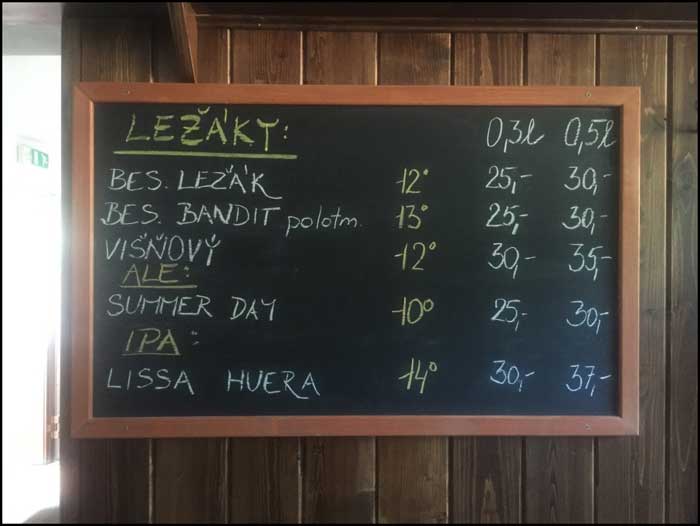 LEŽÁKY: 0,3l 0,5l
BES. LEŽÁK 12° 25,- 30,-
BES. BANDIT polotm. 13° 25,- 30,-
VIŠŇOVÝ 12° 30,- 35,-
ALE:
SUMMER DAY 10° 25,- 30,-
IPA:
LISSA HUERA 14° 30,- 37,-